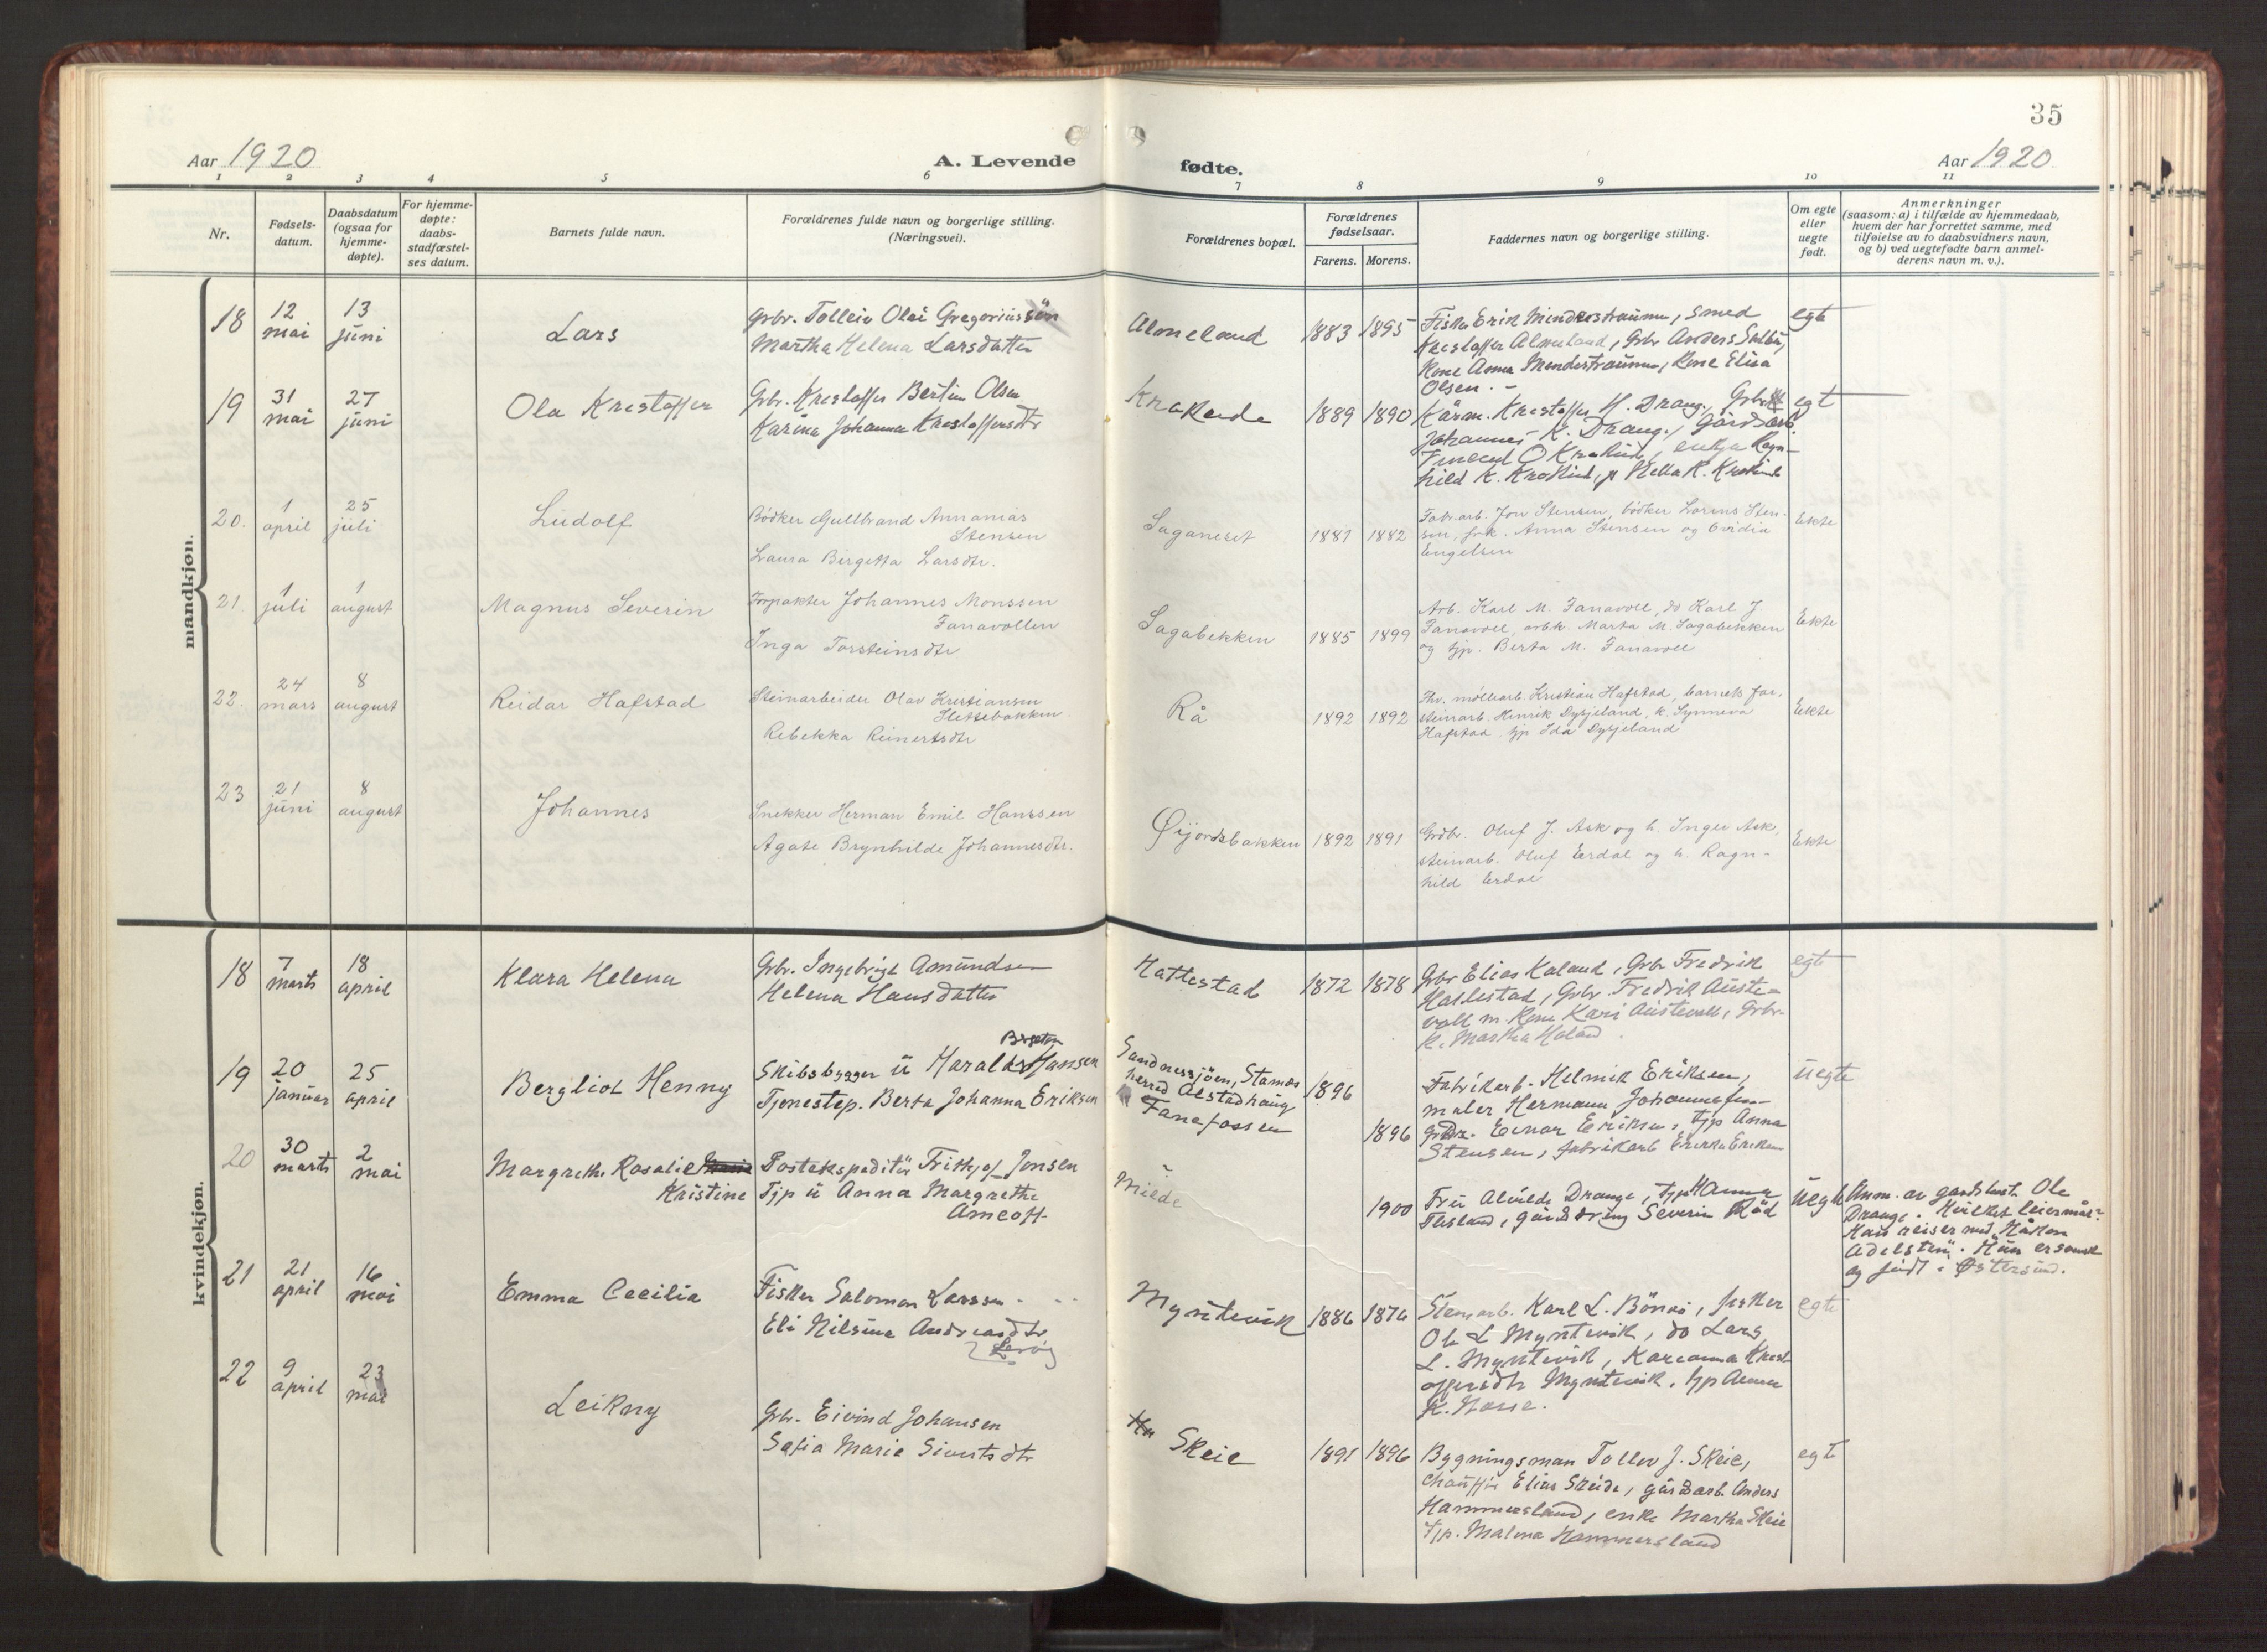 35
Aar 1920
A. Levende
fødte.
Aar 1920
1 2 3 4 5 6 7 8 9 10 11
Nr.
Fødsels-
datum.
Daabsdatum
(ogsaa for
hjemme-
døpte).
For hjemme-
døpte:
daabs-
stadfæstel-
ses datum.
Barnets fulde navn.
Forældrenes fulde navn og borgerlige stilling.
(Næringsvei).
Forældrenes bopæl.
Forældrenes
fødselsaar.
Farens. Morens.
Faddernes navn og borgerlige stilling.
Om egte
eller
uegte
født.
Anmerkninger
(saasom: a) i tilfælde av hjemmedaab,
hvem der har forrettet samme, med
tilføielse av to daabsvidners navn,
og b) ved uegtefødte barn anmel-
derens navn m. v.).
mandkjøn.
18
12
mai
13
juni
Lars
Grbr. Tolleiv Olai Gregoriussön
Martha Helena Larsdatter
Almeland
1883 1895
Fisker Erik Mindestraumen, smed
Kristoffer Almeland, Grbr Anders
Kone Anna Mendestraumen, Kone Elisa
Olsen. -
egte
19
31
mai
27
juni
Ola Kristoffer
Grb. Kristoffer Bertin Olsen
Karina Johanna Kristoffersdtr
Krakeide
1889 1890
Kårm. Kristoffer H. Drange, Grbr
Johannes K. Drange, Gårdsarb.
O Krakeide, enkja Ragn-
hild K. Krakeide, p K. Krakeide
egt
20.
1
april
25
juli
Ludolf
Bødker Gullbrand Annanias
Stensen
Laura Birgetta Larsdtr.
Saganeset
1881 1882
Fabr.arb. Jon Stensen, bødker Lorens Sten-
sen, frk. Anna Stensen og Ovidia
Engelsen
Ekte
21.
1
juli
1
august
Magnus Severin
Forpakter Johannes Monssen
Fanavollen
Inga Torsteinsdtr
Sagabekken
1885 1899
Arb. Karl M. Fanavoll, do Karl J.
Fanavoll, arbk. Marta M. Sagabekken
og tjp. Berta M. Fanavoll
Ekte
22.
24
mars
8
august
Reidar Hafstad
Steinarbeider Olav Kristiansen
Slettebakken
Rebekka Reinertsdtr
Rå
1892 1892
Fhv. møllearb. Kristian Hafstad, barnets far,
steinarb. Henrik Dysjeland, k. Synneva
Hafstad, tjp Ida Dysjeland
Ekte
23
21
juni
8
august
Johannes
Snekker Herman Emil Hanssen
Agate Brynhilde Johannesdtr.
Øijordsbakken
1892 1891
Grdbr. Oluf J. Ask og h. Inger Ask,
steinarb. Oluf Erdal og h. Ragn-
hild Erdal
Ekte
kvindekjøn.
18
7
marts
18
april
Klara Helena
Grbr. Ingebrigt Amundsen
Helena Hansdatter
Hattestad
1872 1878
Grbr Elias Kaland, Grbr Fredrik
Hattestad, Grbr. Fredrik Auste-
voll m. Kone Kari Austevoll, Grbr-
K. Martha Haland.
egt
19
20
januar
25
april
Bergliot Henny
Skibsbygger u Harald Hansen
Tjenestep. Berta Johanna Eriksen
Sandnessjöen, Stamnes
herred Alstadhaug
Fanefossen
1896
1896
Fabrikarb. Helmik Eriksen,
maler Hermann Johannesen
Einar Eriksen, tjp Anna
Stensen, fabrikarb Eriksen
uegte
20
30
marts
2
mai
Margrethe Rosalie
Kristine
Postekspeditör Fritjof Jensen
Tjp u Anna Margrethe
Milde
1900
Fru Alvilde Drange, tjp Hanna
gårdsdreng Severin Röd
Uegte
Anm. av gardbest. Ole
Drange. Hvilket leiermål?
Han reiser med "Håkon
Adelsten". Hun er svensk
og født i Østersund.
21
21
april
16
mai
Emma Cecilia
Fisker Salomon Larssen
Eli Nilsine Andreasdtr
Myntevik
1886 1876
Stenarb. Karl L. Bönes, fisker
Ole L Myntevik, do Lars
L. Myntevik, Karianna Krist-
offersdtr Myntevik, tjp Anna
K.
egte
22
9
april
23
mai
Leikny
Grbr. Eivind Johansen
Sofia Marie Sivertsdtr
Skeie
1891 1896
Bygningsman Tollev J. Skeie,
chauffør Elias Skeide, gårdsarb. Anders
Hammersland, enke Martha Skeie
tjp. Malena Hammersland
egt